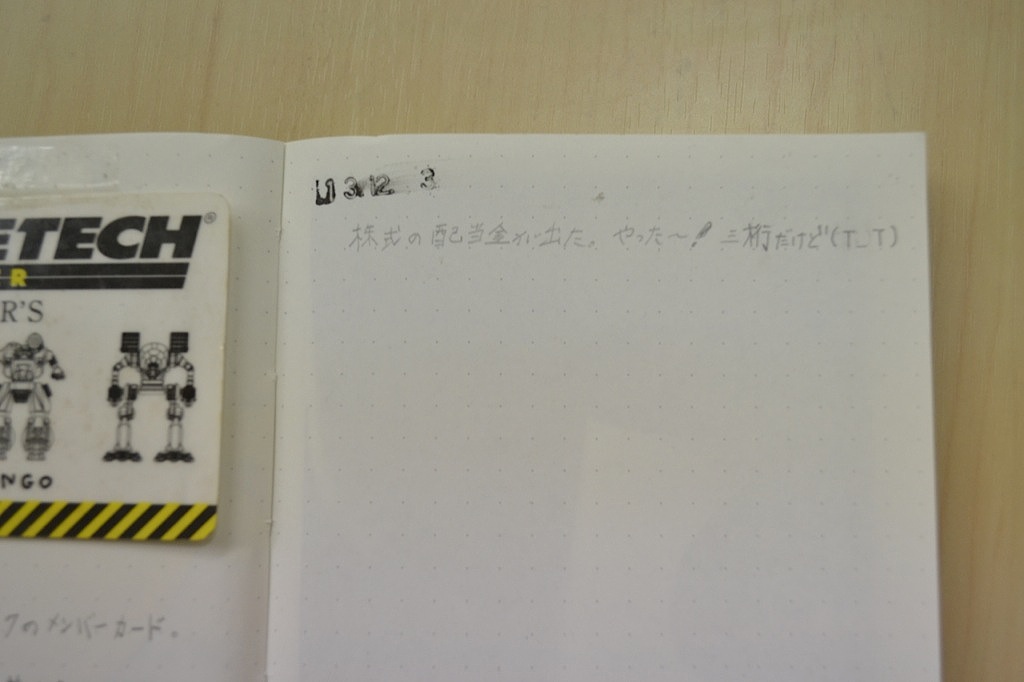 ETECH®
R
R'S
NGO
クのメンバーカード。
3.12 3
株式の配当金が出た。やった〜! 三桁だけど(T_T)